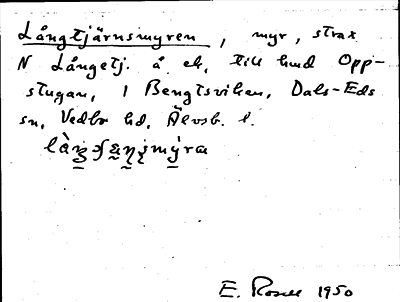 Långtjärnsmyren, myr, strax
N Långetj. å ek, till hmd Opp-
stugan, i Bengtsviken, Dals-Eds
sn, Vedbo hd, Älvsb. l.
E. Rosell 1950